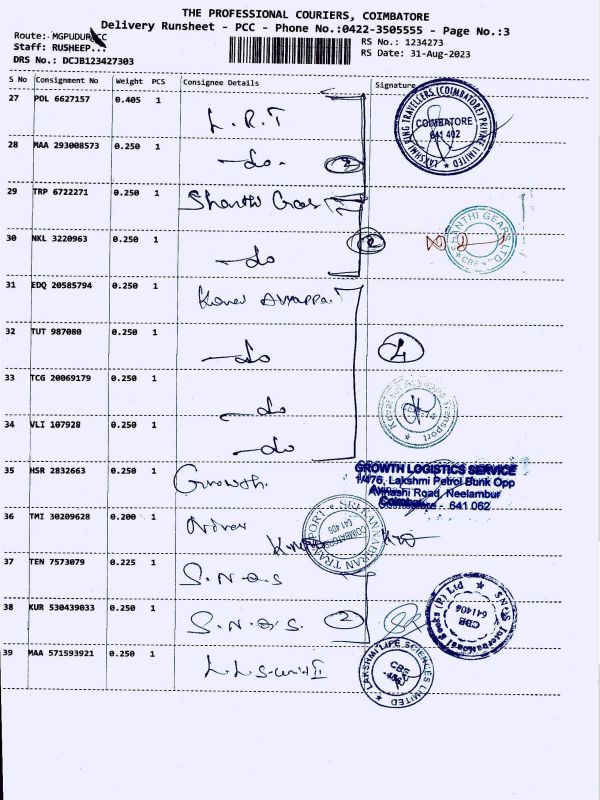 THE PROFESSIONAL COURIERS, COIMBATORE
Delivery Runsheet - PCC - Phone No.:0422-3505555 - Page No.:3
Route: MGPUDUR
Staff: RUSHEEP...
DRS No.: DCJB123427303
RS No.: 1234273
RS Date: 31-Aug-2023
S No Consignment No Weight PCS Consignee Details Signature
27 POL 6627157 0.405 1 L.R.T
LAKSHMI RING TRAVELLERS (COIMBATORE) PRIVATE LIMITED
COIMBATORE
641 402
28 MAA 293008573 0.250 1 -do- 2
29 TRP 6722271 0.250 1 Shanthi Gears
30 NKL 3220963 0.250 1 -do 2
SHANTHI GEARS LTD
CBE
31 EDQ 20585794 0.250 1 Ayyappa
32 TUT 987080 0.250 1 -do 4
33 TCG 20069179 0.250 1 -do
Transport
34 VLI 107928 0.250 1 -do
35 HSR 2832663 0.250 1 Growth
GROWTH LOGISTICS SERVICE
1/476, Lakshmi Petrol Bunk Opp
Avinashi Road, Neelambur
Coimbatore - 641 062
36 TMI 30209628 0.200 1
TRANSPORT
COIMBATORE
641 406
37 TEN 7573079 0.225 1 S.N.Q.S
38 KUR 530439033 0.250 1 S.N.Q.S. 2
SNQS International Socks (P) Ltd
CBE
641406
39 MAA 571593921 0.250 1 L.L.S-unit II
LAKSHMI LIFE SCIENCES LIMITED
CBE